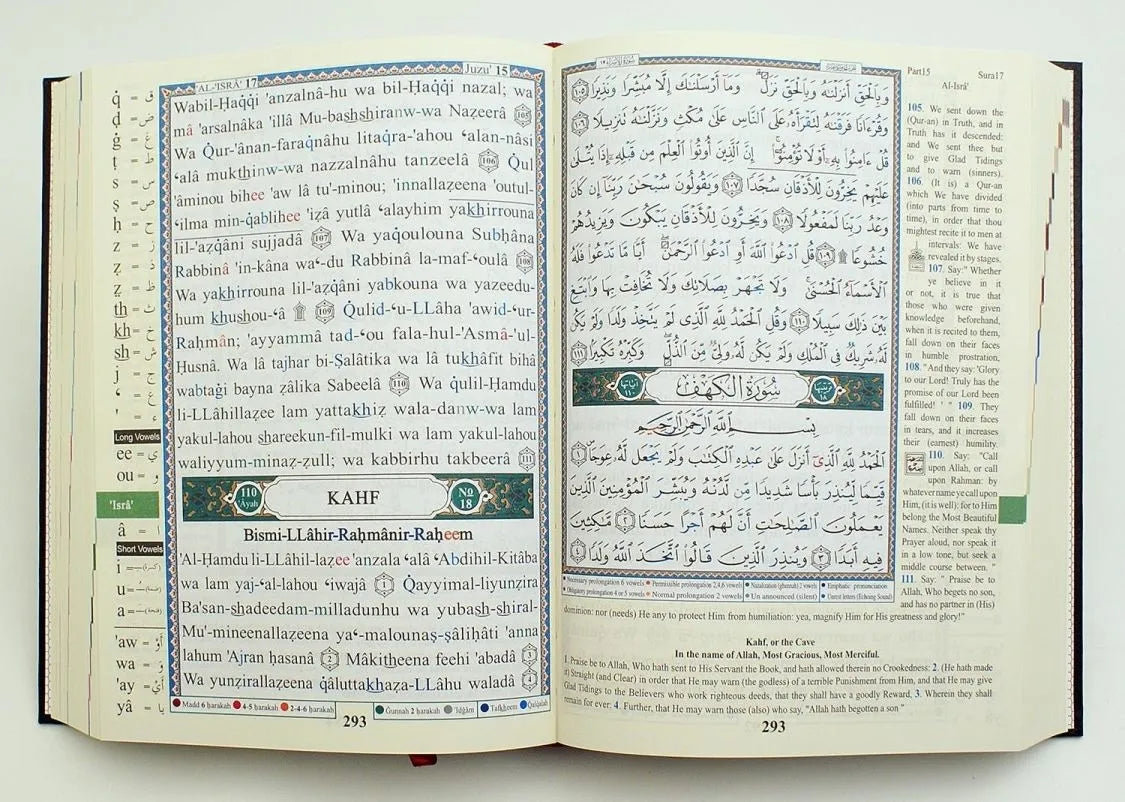 q̇ = ق
ḍ = ض
ġ = غ
ṭ = ط
s = س
ṣ = ص
ḥ = ح
z = ز
ẓ = ذ
ẓ = ظ
th = ث
kh = خ
sh = ش
j = ج
‘ = ع
' = ء
Long Vowels
ee = ي
ou = و
'Isrâ'
â = ا
Short Vowels
i =
u =
a =
'aw = أَوْ
wa = وَ
'ay = أَيْ
yâ = يا
'AL-'ISRÂ' 17
Juzu' 15
Wabil-Haqqi 'anzalnâ-hu wa bil-Haqqi nazal; wa
mâ 'arsalnâka 'illâ Mu-bashshiranw-wa Nazeerâ 105
Wa Q̇ur-'ânan-faraq̇nâhu litaq̇ra-'ahou ‘alan-nâsi
‘alâ mukthinw-wa nazzalnâhu tanzeelâ 106 Q̇ul
'âminou bihee 'aw lâ tu'-minou; 'innallaẓeena 'outul-
‘ilma min-q̇ablihee 'iẓâ yutlâ ‘alayhim yakhirrouna
lil-'aẓq̇âni sujjadâ 107 Wa yaq̇oulouna Subḥâna
Rabbinâ 'in-kâna wa‘-du Rabbinâ la-maf-‘oulâ 108
Wa yakhirrouna lil-'aẓq̇âni yabkouna wa yazeedu-
hum khushou-‘â ۩ 109 Q̇ulid-‘u-LLâha 'awid-‘ur-
Raḥmân; 'ayyammâ tad-‘ou fala-hul-'Asmâ-'ul-
Ḥusnâ. Wa lâ tajhar bi-Ṣalâtika wa lâ tukhâfit bihâ
wabtaġi bayna ẓâlika Sabeelâ 110 Wa q̇ulil-Ḥamdu
li-LLâhillaẓee lam yattakhiẓ wala-danw-wa lam
yakul-lahou shareekun-fil-mulki wa lam yakul-lahou
waliyyum-minaẓ-ẓull; wa kabbirhu takbeerâ 111
110 'Âyah KAHF No 18
Bismi-LLâhir-Raḥmânir-Raḥeem
'Al-Ḥamdu li-LLâhil-laẓee 'anzala ‘alâ ‘Abdihil-Kitâba
wa lam yaj-‘al-lahou ‘iwajâ 1 Q̇ayyimal-liyunẓira
Ba'san-shadeedam-milladunhu wa yubash-shiral-
Mu'-mineenallaẓeena ya‘-malounaṣ-ṣâliḥâti 'anna
lahum 'Ajran ḥasanâ 2 Mâkitheena feehi 'abadâ 3
Wa yunẓirallaẓeena q̇âluttakhaẓa-LLâhu waladâ 4
Madd 6 ḥarakah 4-5 ḥarakah 2-4-6 ḥarakah Ġunnah 2 ḥarakah 'Idġâm Tafkheem Q̇alq̇alah
293
سُورَةُ الإِسْرَاءِ ١٧
وَبِالْحَقِّ أَنزَلْنَٰهُ وَبِالْحَقِّ نَزَلَ ۗ وَمَا أَرْسَلْنَٰكَ إِلَّا مُبَشِّرًا وَنَذِيرًا ١٠٥
وَقُرْءَانًا فَرَقْنَٰهُ لِتَقْرَأَهُۥ عَلَى النَّاسِ عَلَىٰ مُكْثٍ وَنَزَّلْنَٰهُ تَنزِيلًا ١٠٦
قُلْ ءَامِنُوا بِهِۦٓ أَوْ لَا تُؤْمِنُوٓا ۚ إِنَّ الَّذِينَ أُوتُوا الْعِلْمَ مِن قَبْلِهِۦٓ إِذَا يُتْلَىٰ
عَلَيْهِمْ يَخِرُّونَ لِلْأَذْقَانِ سُجَّدًا ١٠٧ وَيَقُولُونَ سُبْحَٰنَ رَبِّنَآ إِن كَانَ
وَعْدُ رَبِّنَا لَمَفْعُولًا ١٠٨ وَيَخِرُّونَ لِلْأَذْقَانِ يَبْكُونَ وَيَزِيدُهُمْ
خُشُوعًا ۩ ١٠٩ قُلِ ادْعُوا اللَّهَ أَوِ ادْعُوا الرَّحْمَٰنَ ۖ أَيًّا مَّا تَدْعُوا فَلَهُ
الْأَسْمَآءُ الْحُسْنَىٰ ۚ وَلَا تَجْهَرْ بِصَلَاتِكَ وَلَا تُخَافِتْ بِهَا وَابْتَغِ
بَيْنَ ذَٰلِكَ سَبِيلًا ١١٠ وَقُلِ الْحَمْدُ لِلَّهِ الَّذِى لَمْ يَتَّخِذْ وَلَدًا وَلَمْ يَكُن
لَّهُۥ شَرِيكٌ فِى الْمُلْكِ وَلَمْ يَكُن لَّهُۥ وَلِىٌّ مِّنَ الذُّلِّ ۖ وَكَبِّرْهُ تَكْبِيرًا ١١١
ترتيبها ١٨ سُورَةُ الْكَهْفِ آياتها ١١٠
بِسْمِ اللَّهِ الرَّحْمَٰنِ الرَّحِيمِ
الْحَمْدُ لِلَّهِ الَّذِىٓ أَنزَلَ عَلَىٰ عَبْدِهِ الْكِتَٰبَ وَلَمْ يَجْعَل لَّهُۥ عِوَجَا ١
قَيِّمًا لِّيُنذِرَ بَأْسًا شَدِيدًا مِّن لَّدُنْهُ وَيُبَشِّرَ الْمُؤْمِنِينَ الَّذِينَ
يَعْمَلُونَ الصَّٰلِحَٰتِ أَنَّ لَهُمْ أَجْرًا حَسَنًا ٢ مَّٰكِثِينَ
فِيهِ أَبَدًا ٣ وَيُنذِرَ الَّذِينَ قَالُوا اتَّخَذَ اللَّهُ وَلَدًا ٤
Necessary prolongation 6 vowels Permissible prolongation 2,4,6 vowels Nazalization (ghunnah) 2 vowels Emphatic pronunciation
Obligatory prolongation 4 or 5 vowels Normal prolongation 2 vowels Un announced (silent) Unrest letters (Echoing Sound)
Part15 Sura17
Al-Isrâ'
105. We sent down the
(Qur-an) in Truth, and in
Truth has it descended:
and We sent thee but
to give Glad Tidings
and to warn (sinners).
106. (It is) a Qur-an
which We have divided
(into parts from time to
time), in order that thou
mightest recite it to men at
intervals: We have
revealed it by stages.
107. Say:" Whether
ye believe in it
or not, it is true that
those who were given
knowledge beforehand,
when it is recited to them,
fall down on their faces
in humble prostration,
108. "And they say: 'Glory
to our Lord! Truly has the
promise of our Lord been
fulfilled! ' " 109. They
fall down on their faces
in tears, and it increases
their (earnest) humility.
110. Say: "Call
upon Allah, or call
upon Rahman: by
whatever name ye call upon
Him, (it is well): for to Him
belong the Most Beautiful
Names. Neither speak thy
Prayer aloud, nor speak it
in a low tone, but seek a
middle course between. "
111. Say: " Praise be to
Allah, Who begets no son,
and has no partner in (His)
dominion: nor (needs) He any to protect Him from humiliation: yea, magnify Him for His greatness and glory!"
Kahf, or the Cave
In the name of Allah, Most Gracious, Most Merciful.
1. Praise be to Allah, Who hath sent to His Servant the Book, and hath allowed therein no Crookedness: 2. (He hath made
it) Straight (and Clear) in order that He may warn (the godless) of a terrible Punishment from Him, and that He may give
Glad Tidings to the Believers who work righteous deeds, that they shall have a goodly Reward, 3. Wherein they shall
remain for ever: 4. Further, that He may warn those (also) who say, "Allah hath begotten a son "
293